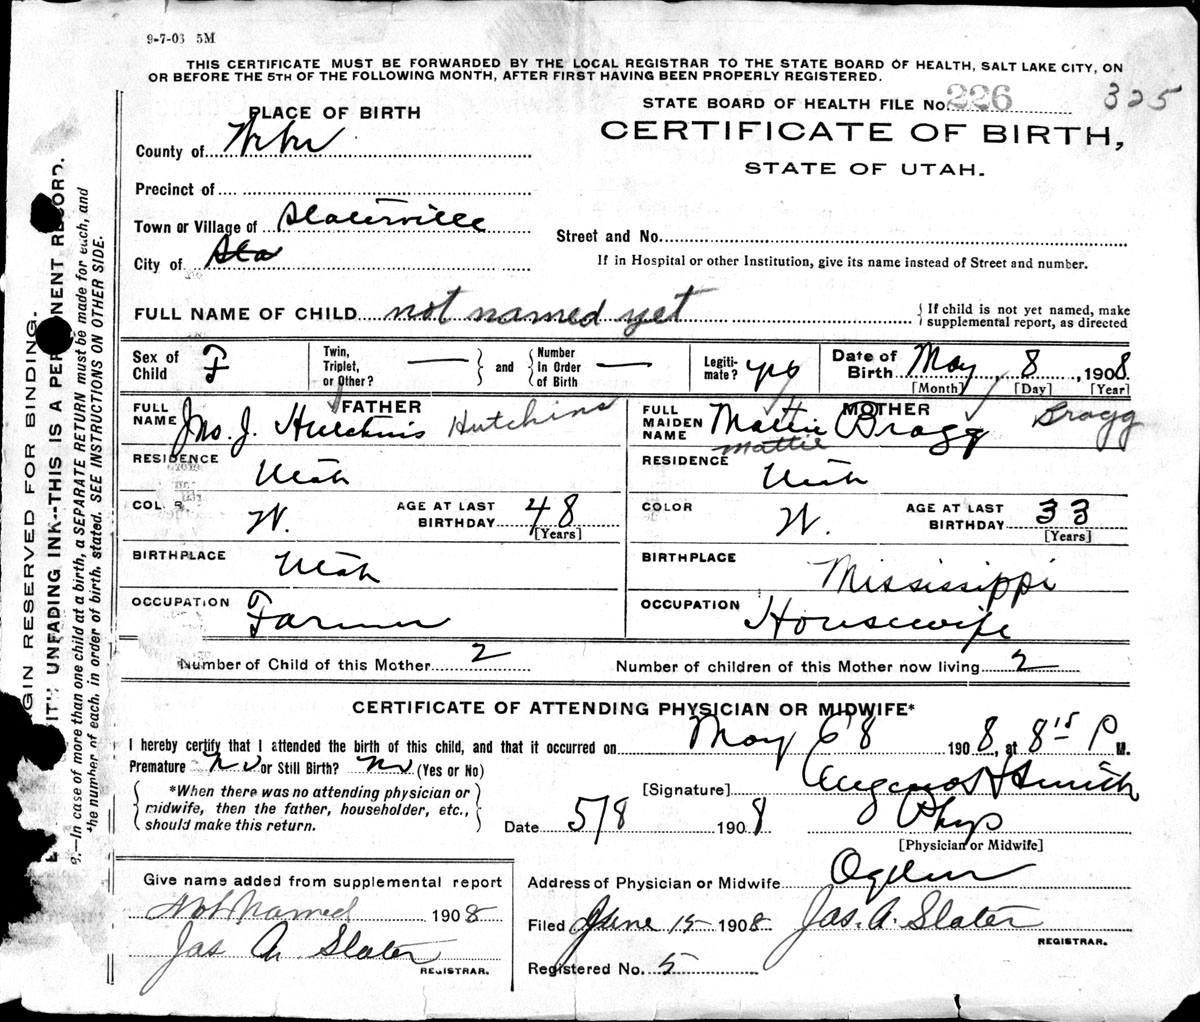 9-7-03 5M
THIS CERTIFICATE MUST BE FORWARDED BY THE LOCAL REGISTRAR TO THE STATE BOARD OF HEALTH, SALT LAKE CITY, ON
OR BEFORE THE 5TH OF THE FOLLOWING MONTH, AFTER FIRST HAVING BEEN PROPERLY REGISTERED.
STATE BOARD OF HEALTH FILE No. 226 325
CERTIFICATE OF BIRTH,
STATE OF UTAH.
PLACE OF BIRTH
County of Weber
Precinct of
Town or Village of Slaterville
City of Sla
Street and No.
If in Hospital or other Institution, give its name instead of Street and number.
FULL NAME OF CHILD not named yet
If child is not yet named, make
supplemental report, as directed
Sex of Child F
Twin, Triplet, or Other? —
and
Number In Order of Birth —
Legitimate? yes
Date of Birth May 8, 1908
[Month] [Day] [Year]
FATHER
FULL NAME Jno. J. Hutchins Hutchins
RESIDENCE Utah
COL W.
AGE AT LAST BIRTHDAY 48
[Years]
BIRTHPLACE Utah
OCCUPATION Farmer
MOTHER
FULL MAIDEN NAME Mattie Bragg Bragg
Mattie
RESIDENCE Utah
COLOR W.
AGE AT LAST BIRTHDAY 33
[Years]
BIRTHPLACE Mississippi
OCCUPATION Housewife
Number of Child of this Mother 2
Number of children of this Mother now living 2
CERTIFICATE OF ATTENDING PHYSICIAN OR MIDWIFE*
I hereby certify that I attended the birth of this child, and that it occurred on May 8 1908, at 8 15 P M.
Premature No or Still Birth? No (Yes or No)
*When there was no attending physician or
midwife, then the father, householder, etc.,
should make this return.
[Signature] Smith
Date 5/8 1908
Phys
[Physician or Midwife]
Address of Physician or Midwife Ogden
Filed June 15 1908 Jas. A. Slater
REGISTRAR.
Registered No. 5
Give name added from supplemental report
Not Named 1908
Jas A. Slater
REGISTRAR.
GIN RESERVED FOR BINDING.
UNFADING INK--THIS IS A PER NENT RECORD.
—In case of more than one child at a birth, a SEPARATE RETURN must be made for each, and
the number of each, in order of birth, stated. SEE INSTRUCTIONS ON OTHER SIDE.